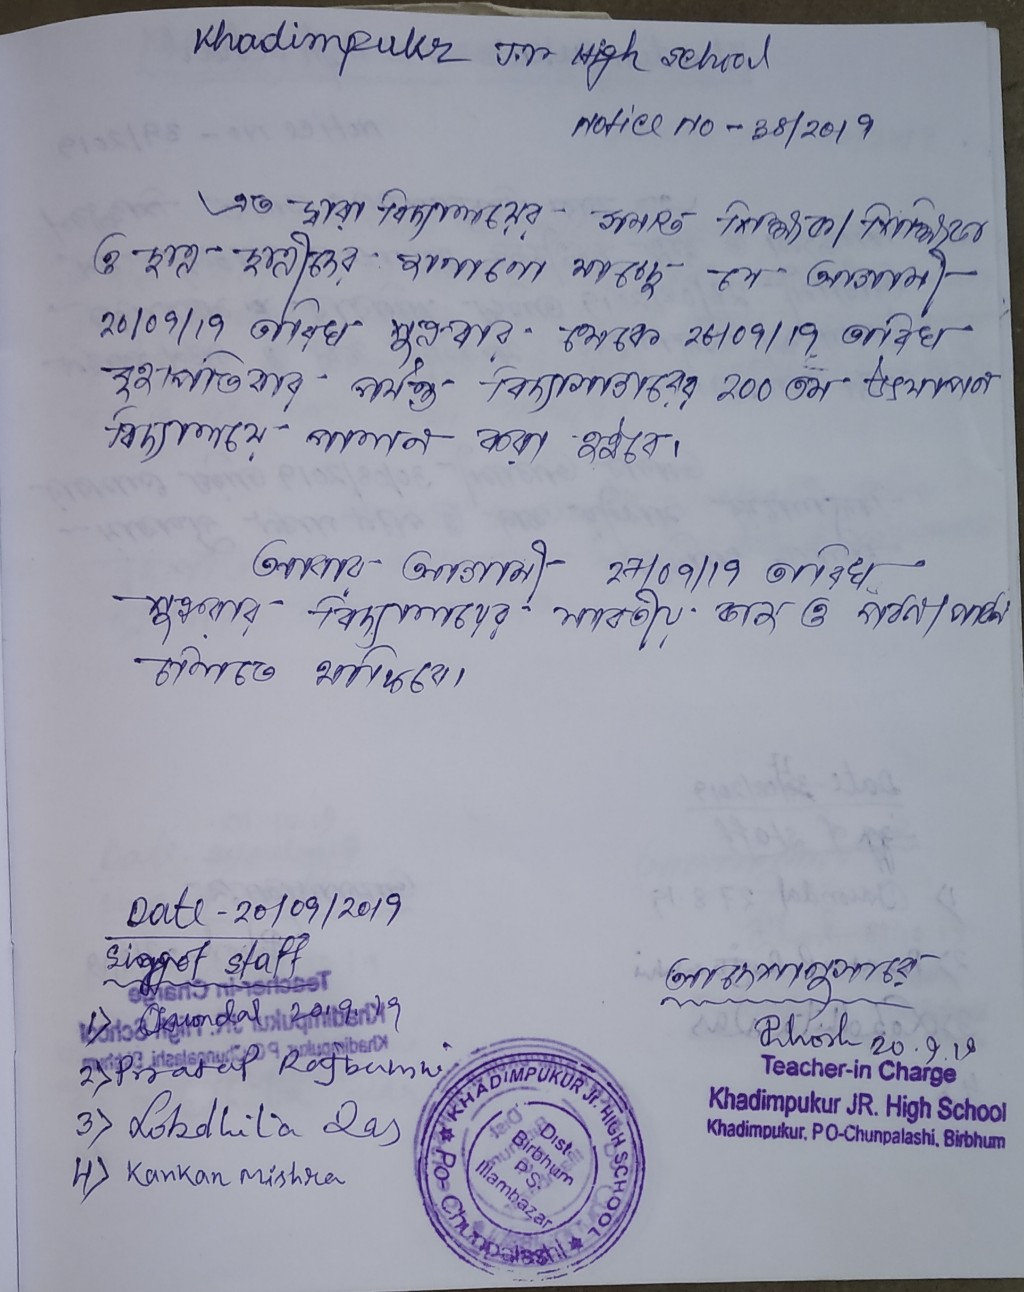 Khadimpukr Jr High School
Notice No - 38/2019
এত দ্বারা বিদ্যালয়ের সমস্ত শিক্ষক/শিক্ষিকা
ও ছাত্র ছাত্রীদের জানানো যাচ্ছে যে আগামী
20/09/19 তারিখ শুক্রবার থেকে 26/09/19 তারিখ
বৃহস্পতিবার পর্যন্ত বিদ্যাসাগরের 200 তম উৎযাপন
বিদ্যালয়ে পালন করা হইবে।
আবার আগামী 27/09/19 তারিখ
শুক্রবার বিদ্যালয়ের যাবতীয় কাজ ও পঠন/পাঠন
চলিতে থাকিবে।
Date - 20/09/2019
Sign of staff
1) Mondal 20.9.19
2) Prratap Rajbanshi
3) Das
4) Kankan Mishra
আদেশানুসারে
20.9.19
Teacher-in Charge
Khadimpukur JR. High School
Khadimpukur, PO-Chunpalashi, Birbhum
KHADIMPUKUR Jr. HIGH SCHOOL
PO-Chunpalashi
Dist.
Birbhum
P.S.
Illambazar